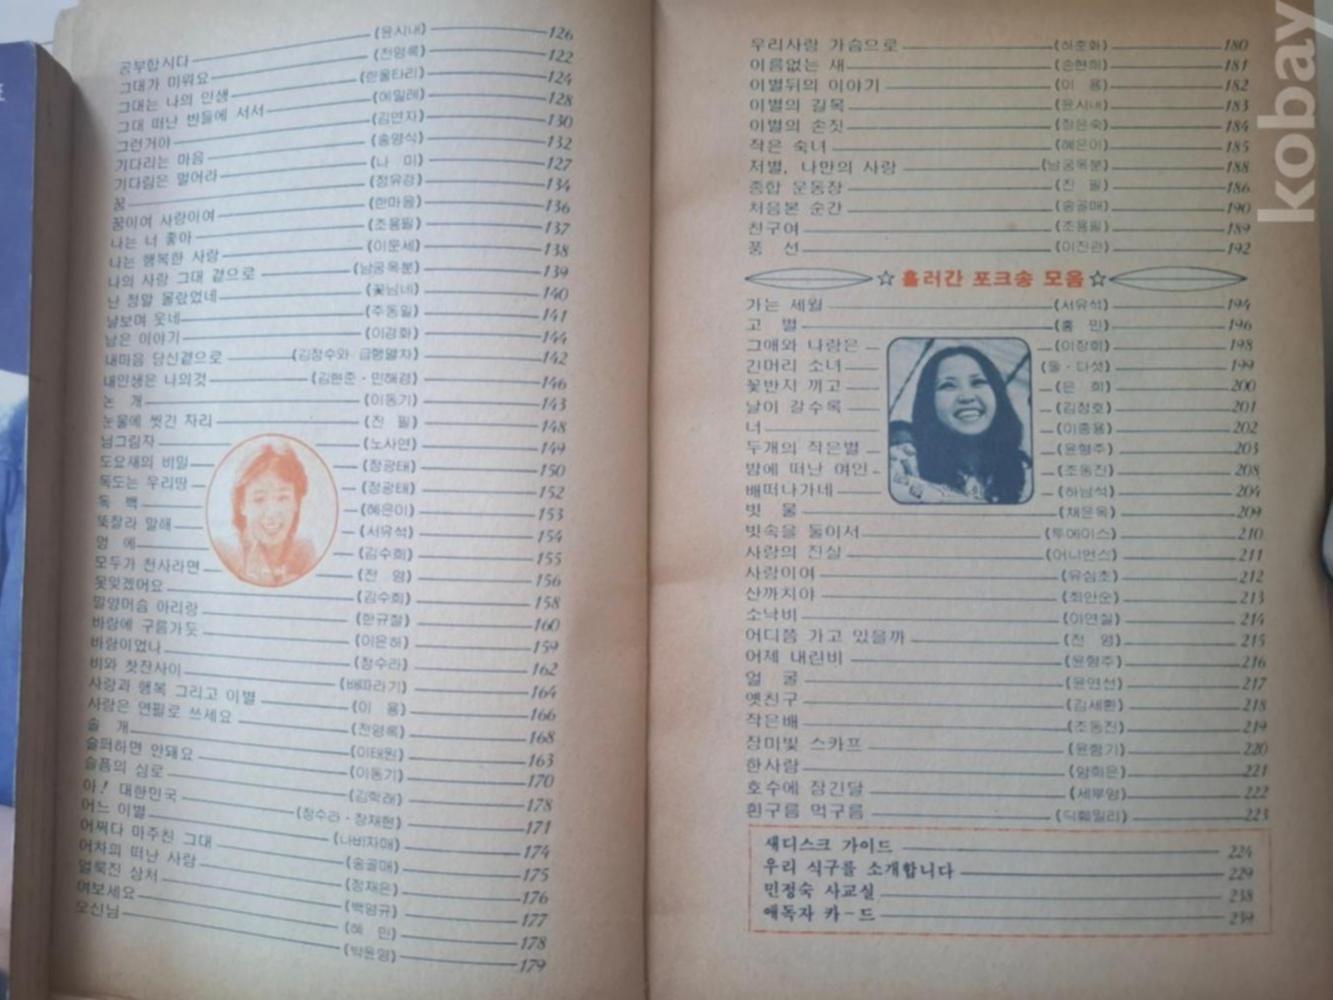 공부합시다 (윤시내) 126
그대가 미워요 (전영록) 122
그대는 나의 인생 (한울타리) 124
그대 떠난 빈들에 서서 (에밀레) 128
그런거야 (김연자) 130
기다리는 마음 (송양식) 132
기다림은 멀어라 (나 미) 127
꿈 (정유경) 134
꿈이여 사랑이여 (한마음) 136
나는 너 좋아 (조용필) 137
나는 행복한 사람 (이문세) 138
나의 사랑 그대 곁으로 (남궁옥분) 139
난 정말 몰랐었네 (꽃남네) 140
날보며 웃네 (주동일) 141
남은 이야기 (이강화) 144
내마음 당신곁으로 (김정수와 급행열차) 142
내인생은 나의것 (김현준·민해경) 146
논 개 (이동기) 143
눈물에 씻긴 자리 (진 필) 148
님그림자 (노사연) 149
도요새의 비밀 (정광태) 150
독도는 우리땅 (정광태) 152
독 백 (혜은이) 153
뚝잘라 말해 (서유석) 154
멍 에 (김수희) 155
모두가 천사라면 (전 영) 156
못잊겠어요 (김수희) 158
밀양머슴 아리랑 (한규철) 160
바람에 구름가듯 (이은하) 159
바람이었나 (정수라) 162
비와 찻잔사이 (배따라기) 164
사랑과 행복 그리고 이별 (이 용) 166
사랑은 연필로 쓰세요 (전영록) 168
솔 개 (이태원) 163
슬퍼하면 안돼요 (이동기) 170
슬픔의 심로 (김학래) 178
아! 대한민국 (정수라·장재현) 171
어느 이별 (나비자매) 174
어쩌다 마주친 그대 (송골매) 175
어차피 떠난 사람 (정재은) 176
얼룩진 상처 (백영규) 177
여보세요 (혜 민) 178
오신님 (박윤영) 179
우리사랑 가슴으로 (하춘화) 180
이름없는 새 (손현희) 181
이별뒤의 이야기 (이 용) 182
이별의 길목 (윤시내) 183
이별의 손짓 (장은숙) 184
작은 숙녀 (혜은이) 185
저별, 나만의 사랑 (남궁옥분) 188
종합 운동장 (진 필) 186
처음본 순간 (송골매) 190
친구여 (조용필) 189
풍 선 (이진관) 192
☆ 흘러간 포크송 모음 ☆
가는 세월 (서유석) 194
고 별 (홍 민) 196
그애와 나랑은 (이장희) 198
긴머리 소녀 (둘·다섯) 199
꽃반지 끼고 (은 희) 200
날이 갈수록 (김정호) 201
너 (이종용) 202
두개의 작은별 (윤형주) 203
밤에 떠난 여인 (조동진) 208
배떠나가네 (하남석) 204
빗 물 (채은옥) 209
빗속을 둘이서 (투에이스) 210
사랑의 진실 (어니언스) 211
사랑이여 (유심초) 212
산까치야 (최안순) 213
소낙비 (이연실) 214
어디쯤 가고 있을까 (전 영) 215
어제 내린비 (윤형주) 216
얼 굴 (윤연선) 217
옛친구 (김세환) 218
작은배 (조동진) 219
장미빛 스카프 (윤항기) 220
한사람 (양희은) 221
호수에 잠긴달 (세부엉) 222
흰구름 먹구름 (딕훼밀리) 223
새디스크 가이드 224
우리 식구를 소개합니다 229
민정숙 사교실 238
애독자 카-드 239
kobay